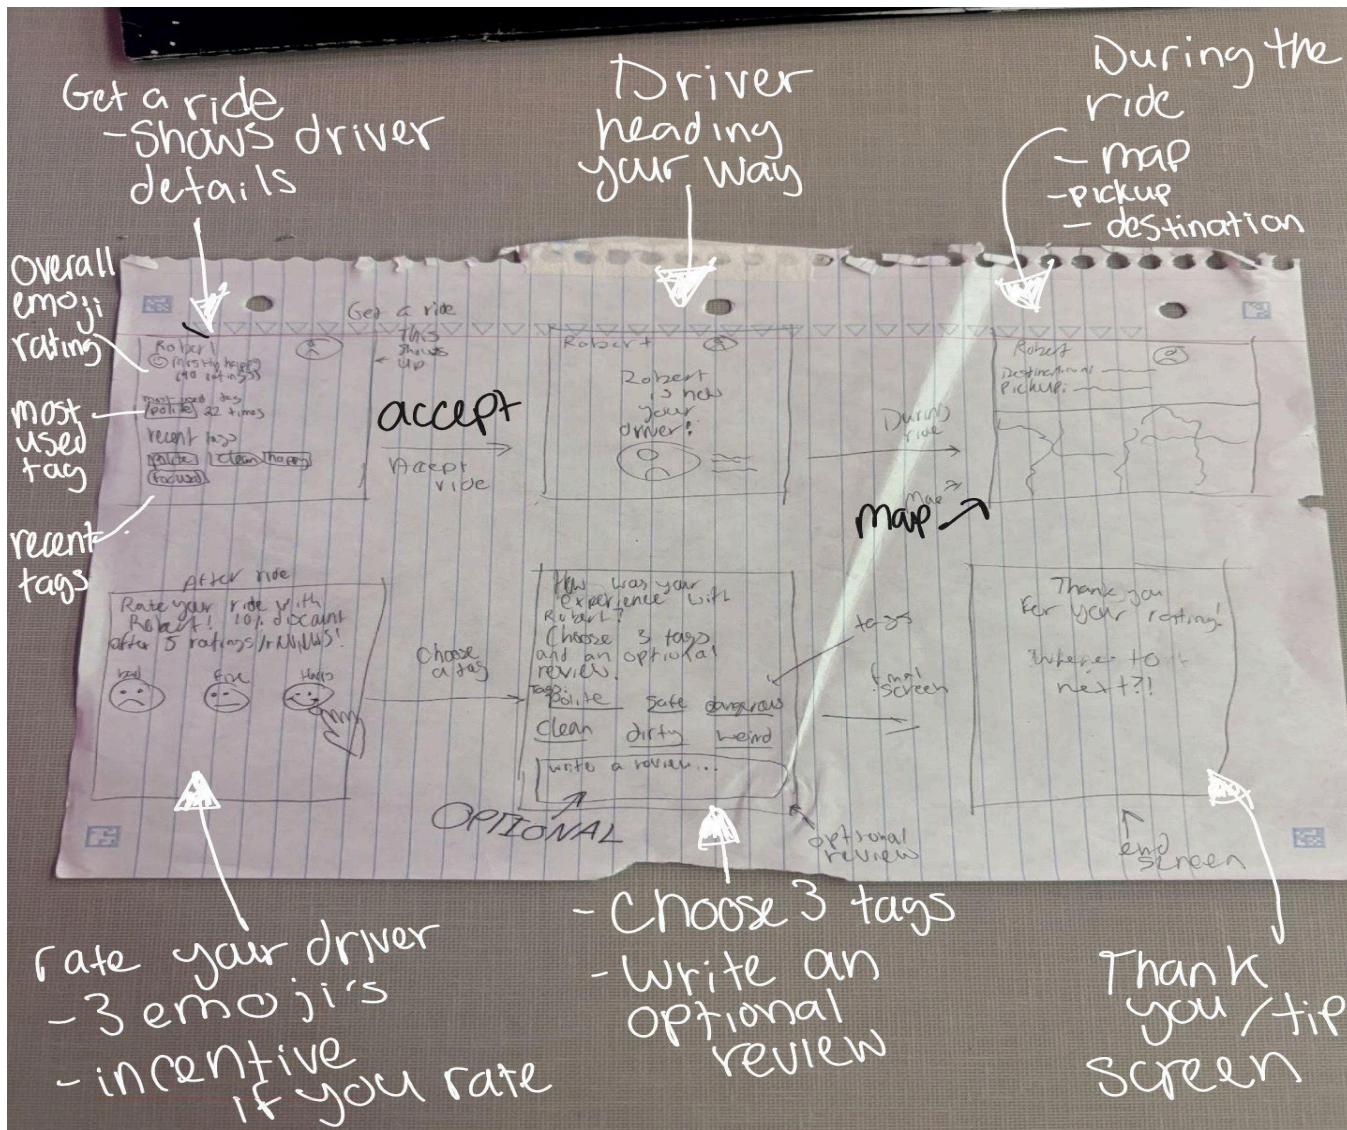 Get a ride
-Shows driver
details
Driver
heading
your way
During the
ride
- map
-pickup
- destination
Overall
emoji
rating
most
used
tag
recent
tags
Get a ride
This
shows
up
Robert
mostly happy
(40 ratings)
most used tag
polite 22 times
recent tags
polite clean happy
focused
accept
Accept
ride
Robert
Robert
is now
your
driver!
During
ride
Map
map
Robert
Destination:
Pickup:
After ride
Rate your ride with
Robert! 10% discount
after 5 ratings/reviews!
Bad Fine Happy
Choose
a tag
How was your
experience with
Robert?
Choose 3 tags
and an optional
review!
Tags:
polite safe dangerous
clean dirty weird
write a review...
OPTIONAL
tags
optional
review
final
screen
Thank you
For your rating!
Where to
next?!
end
screen
rate your driver
- 3 emoji's
- incentive
if you rate
- Choose 3 tags
- Write an
optional
review
Thank
you/tip
screen